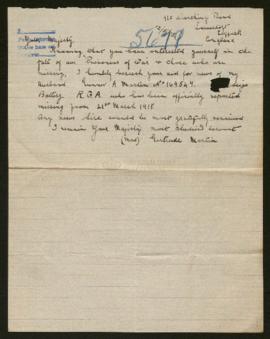 Majesty
Knowing that you have interested yourself in the
fate of our Prisoners of War & those who are
missing, I humbly beseech your aid for news of my
Husband Gunner A Martin No 169847 Siege
Battery R.G.A. who has been officially reported
missing from 21st March 1918.
Any news Sire would be most gratefully received
I remain Your Majesty's most obedient servant
(Mrs) Gertrude Martin